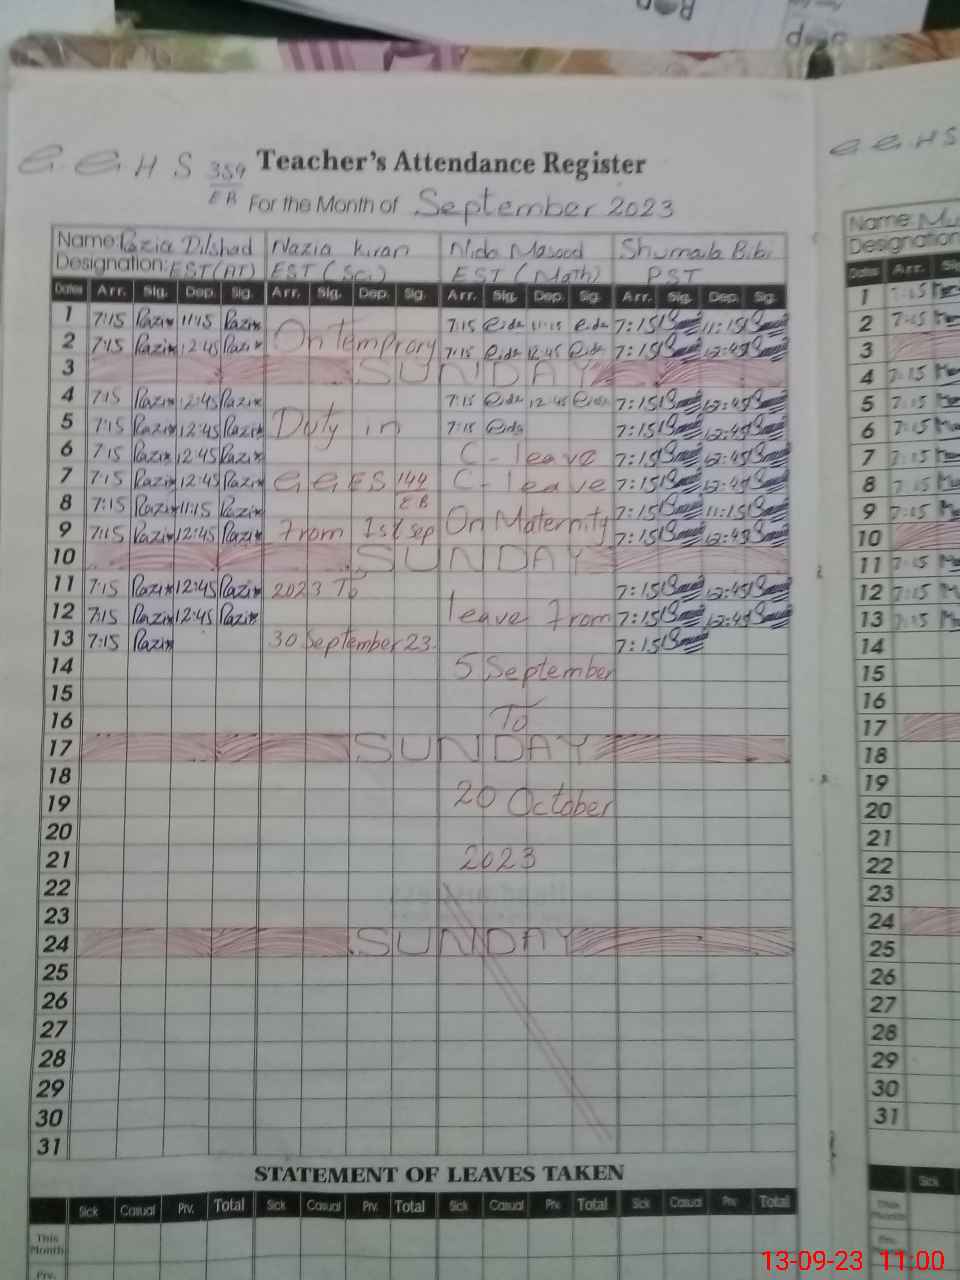 G. G. H S 359/EB Teacher's Attendance Register
For the Month of September 2023
Name: Razia Dilshad Nazia Kiran Nida Masood Shumaila Bibi
Designation: EST(AT) EST (Sci) EST (Math) PST
Dates Arr. Sig. Dep. Sig. Arr. Sig. Dep. Sig. Arr. Sig. Dep. Sig. Arr. Sig. Dep. Sig.
1 7:15 Razia 11:15 Razia 7:15 11:15 7:15 11:15
2 7:15 Razia 12:45 Razia On Temprory 7:15 12:45 7:15 12:45
3 SUNDAY
4 7:15 Razia 12:45 Razia 7:15 12:45 7:15 12:45
5 7:15 Razia 12:45 Razia Duty in 7:15 7:15 12:45
6 7:15 Razia 12:45 Razia C-leave 7:15 12:45
7 7:15 Razia 12:45 Razia G.G.E.S 144/EB C-leave 7:15 12:45
8 7:15 Razia 11:15 Razia 7:15 11:15
9 7:15 Razia 12:45 Razia From 1st Sep On Maternity 7:15 12:45
10 SUNDAY
11 7:15 Razia 12:45 Razia 2023 To 7:15 12:45
12 7:15 Razia 12:45 Razia leave From 7:15 12:45
13 7:15 Razia 30 September 23. 7:15
14 5 September
15
16 To
17 SUNDAY
18
19 20 October
20
21 2023
22
23
24 SUNDAY
25
26
27
28
29
30
31
STATEMENT OF LEAVES TAKEN
Sick Casual Prv. Total Sick Casual Prv. Total Sick Casual Prv. Total Sick Casual Prv. Total
This Month
Prv.
G. G. H S
Name: Mu
Designation
Dates Arr. Sig
1 7:15
2 7:15
3
4 7:15
5 7:15
6 7:15
7 7:15
8 7:15
9 7:15
10
11 7:15
12 7:15
13 7:15
14
15
16
17
18
19
20
21
22
23
24
25
26
27
28
29
30
31
Sick
This Month
13-09-23 11:00